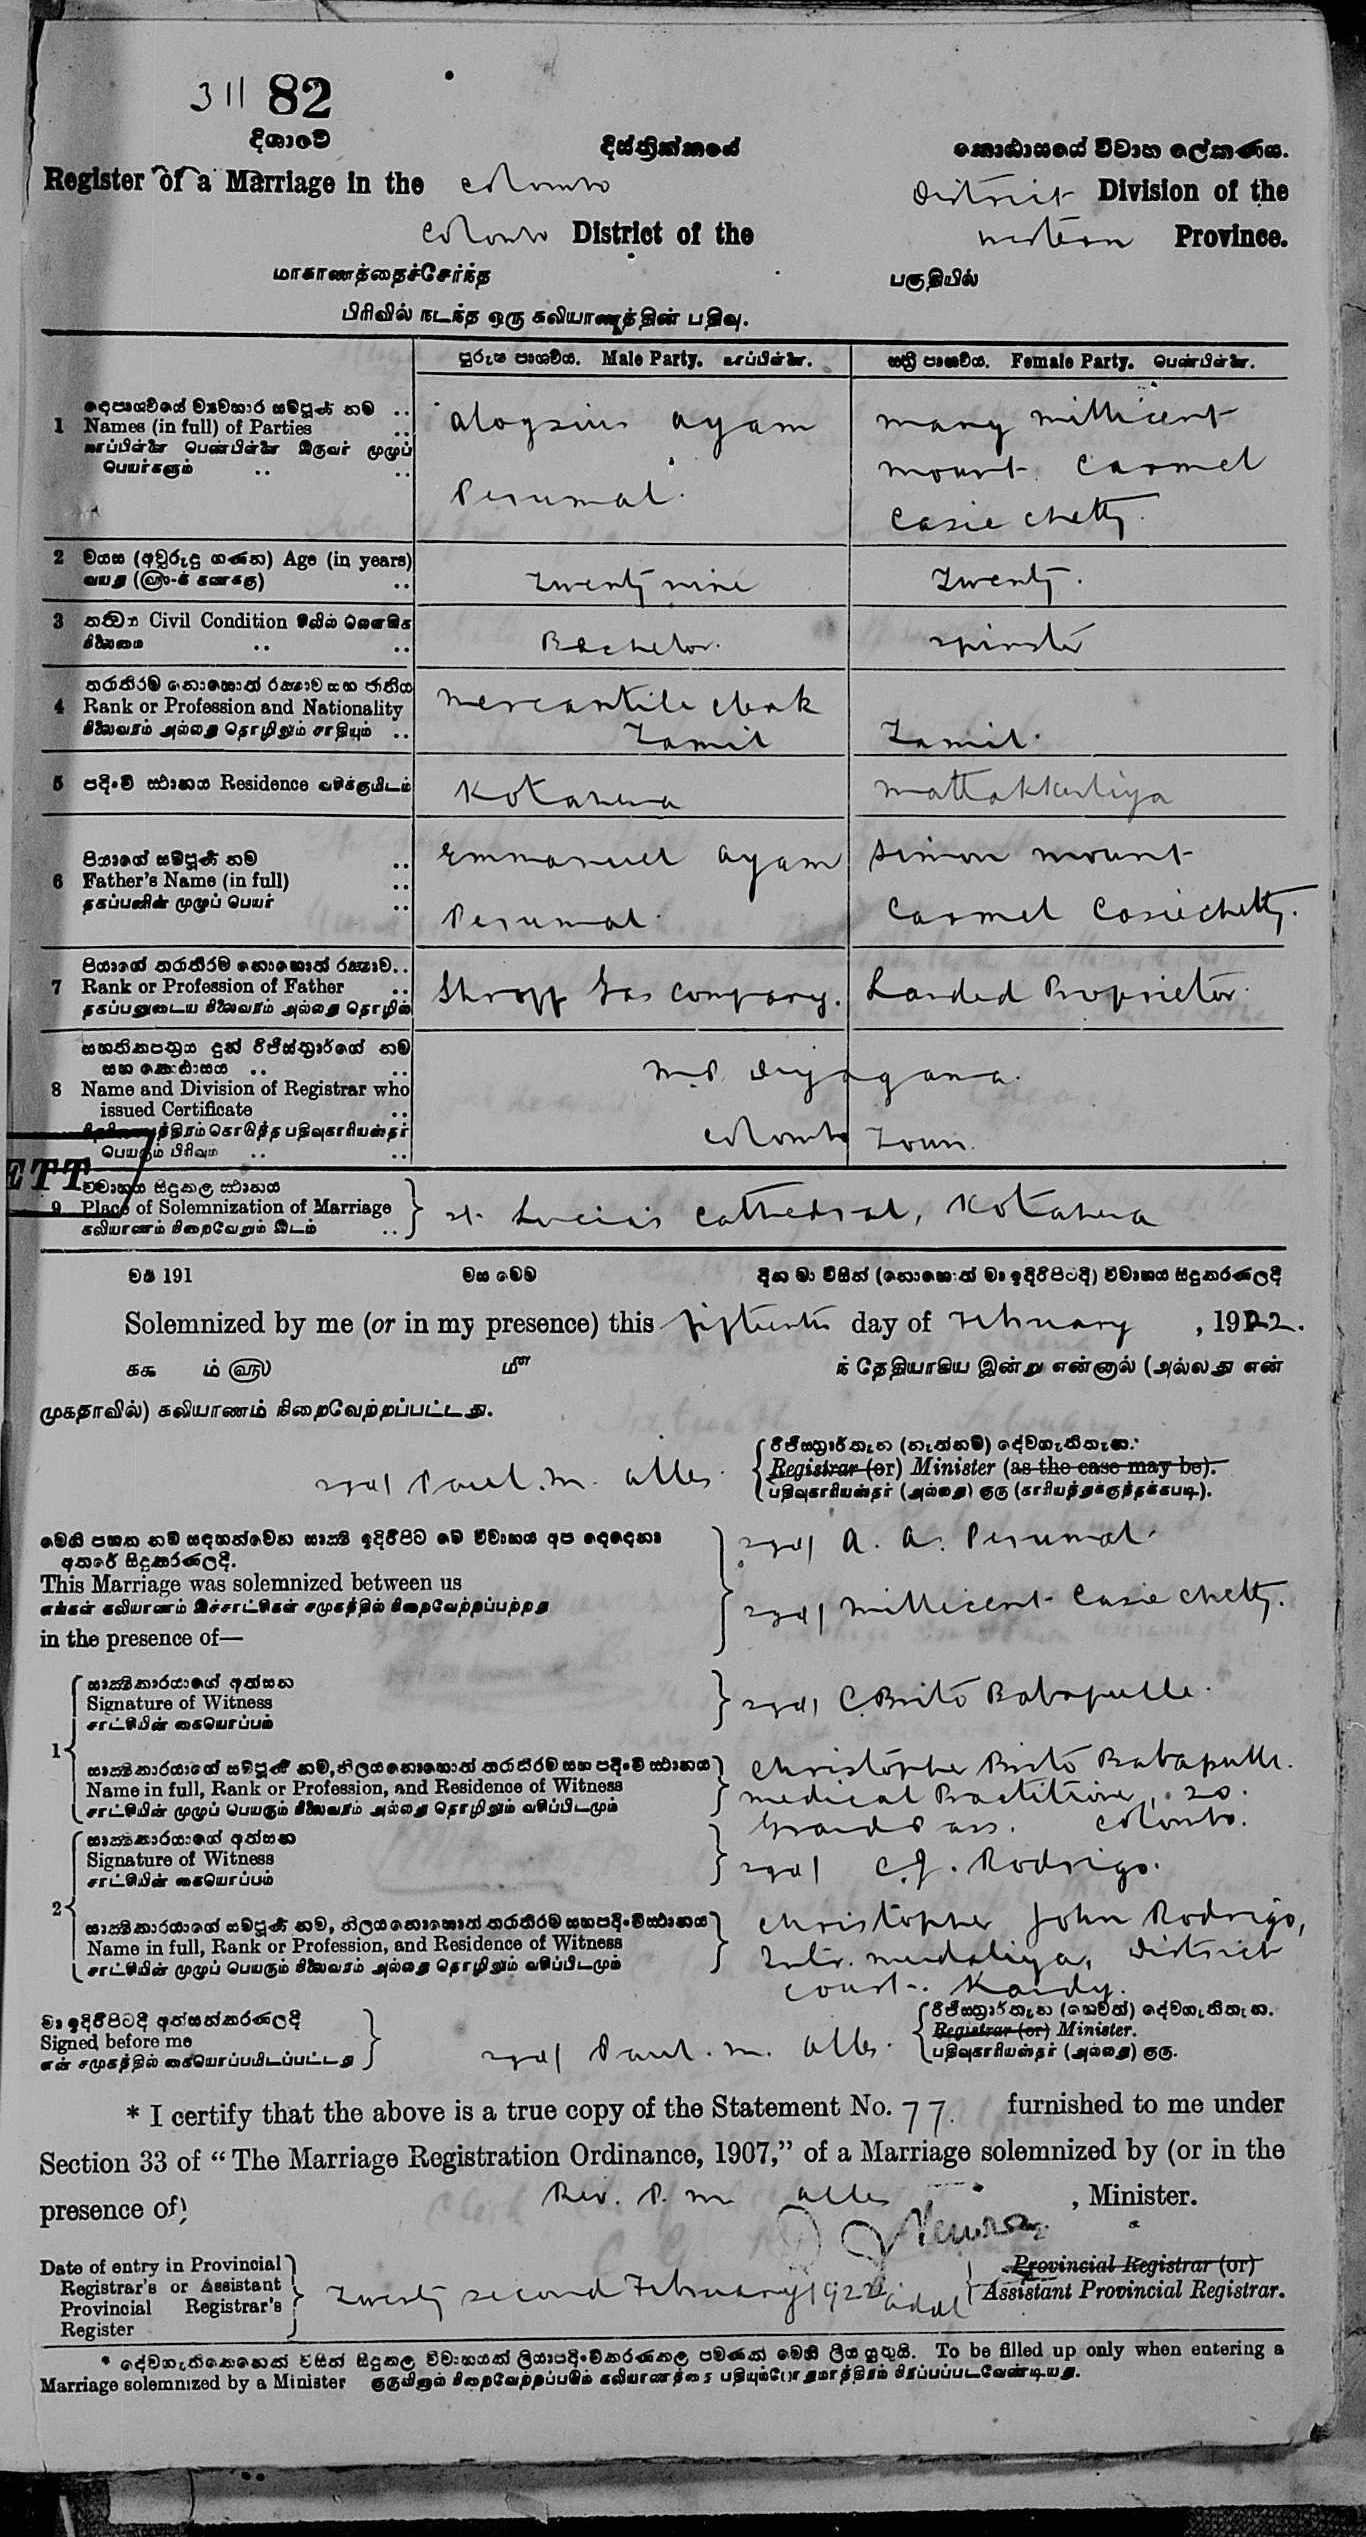 311 82
දිශාවේ දිස්ත්‍රික්කයේ කොඨාසයේ විවාහ ලේකණය.
Register of a Marriage in the Colombo District Division of the
Colombo District of the Western Province.
மாகாணத்தைச்சேர்ந்த பகுதியில்
பிரிவில் நடந்த ஒரு கலியாணத்தின் பதிவு.
පුරුෂ පාශවීය. Male Party. மாப்பிள்ளை. ස්ත්‍රී පාශවීය. Female Party. பெண்பிள்ளை.
දෙපාශවීයේ ව්‍යවහාර සම්පූර්ණ නම ..
1 Names (in full) of Parties .. Aloysius Ayam Mary Millicent
மாப்பிள்ளை பெண்பிள்ளை இருவர் முழுப் Mount Carmel
பெயர்களும் .. .. Perumal. Casie Chetty.
2 වයස (අවුරුදු ගණන) Age (in years) Twenty nine Twenty.
வயது (௵-க் கணக்கு) ..
3 තත්ව්‍ය Civil Condition சிவில் லௌகிக Bachelor. Spinster
நிலைமை .. ..
තරාතිරම නොහොත් රක්ෂාව සහ ජාතිය Mercantile Clerk
4 Rank or Profession and Nationality Tamil Tamil.
நிலைவரம் அல்லது தொழிலும் சாதியும் ..
5 පදිංචි ස්ථානය Residence வசிக்குமிடம் Kotahena Mattakkuliya
පියාගේ සම්පූර්ණ නම .. Emmanuel Ayam Simon Mount
6 Father's Name (in full) ..
தகப்பனின் முழுப் பெயர் .. Perumal. Carmel Casiechetty.
පියාගේ තරාතිරම නොහොත් රක්ෂාව..
7 Rank or Profession of Father .. Shroff Gas Company. Landed Proprietor.
தகப்பனுடைய நிலைவரம் அல்லது தொழில்
සහතිකපත්‍රය දුන් රෙජිස්ත්‍රාර්ගේ නම
සහ කොඨාසය .. .. M.P. Diyagama.
8 Name and Division of Registrar who
issued Certificate .. Colombo Town.
கொடுத்த பதிவுகாரியஸ்தர்
பெயரும் பிரிவும் .. ..
ETT
විවාහය සිදුකල ස්ථානය
9 Place of Solemnization of Marriage St. Lucia's Cathedral, Kotahena
கலியாணம் நிறைவேறும் இடம் ..
වර්ෂ 191 මස මෙම දින මා විසින් (නොහොත් මා ඉදිරිපිටදී) විවාහය සිදුකරණලදී
Solemnized by me (or in my presence) this fifteenth day of February , 1922.
ககூ ம் ௵ மீ ந் தேதியாகிய இன்று என்னால் (அல்லது என்
முகதாவில்) கலியாணம் நிறைவேற்றப்பட்டது.
රෙජිස්ත්‍රාර්තැන (නැත්නම්) දේවගැතිතැන.
Sgd/ Paul. M. Alles. Registrar (or) Minister (as the case may be).
பதிவுகாரியஸ்தர் (அல்லது) குரு (காரியத்துக்குத்தக்கபடி).
මෙහි පහත නම් සඳහන්වෙන සාක්ෂි ඉදිරිපිට මේ විවාහය අප දෙදෙනා Sgd/ A. A. Perumal.
අතරේ සිදුකරණලදී.
This Marriage was solemnized between us
எங்கள் கலியாணம் இச்சாட்சிகள் சமுகத்தில் நிறைவேற்றப்பற்றது Sgd/ Millicent Casie Chetty.
in the presence of—
සාක්ෂිකාරයාගේ අත්සන
Signature of Witness Sgd/ C. Brito Babapulle.
சாட்சியின் கையொப்பம்
1
සාක්ෂිකාරයාගේ සම්පූර්ණ නම, නිලය නොහොත් තරාතිරම සහ පදිංචි ස්ථානය Christopher Brito Babapulle.
Name in full, Rank or Profession, and Residence of Witness Medical Practitioner, 20.
சாட்சியின் முழுப் பெயரும் நிலைவரம் அல்லது தொழிலும் வசிப்பிடமும் Grand Pass. Colombo.
සාක්ෂිකාරයාගේ අත්සන
Signature of Witness Sgd/ C.J. Rodrigo.
சாட்சியின் கையொப்பம்
2
සාක්ෂිකාරයාගේ සම්පූර්ණ නම, නිලය නොහොත් තරාතිරම සහ පදිංචි ස්ථානය Christopher John Rodrigo,
Name in full, Rank or Profession, and Residence of Witness Intr. Mudaliya, District
சாட்சியின் முழுப் பெயரும் நிலைவரம் அல்லது தொழிலும் வசிப்பிடமும் Court. Kandy.
මා ඉදිරිපිටදී අත්සන්කරණලදී රෙජිස්ත්‍රාර්තැන (හෙවත්) දේවගැතිතැන.
Signed before me Sgd/ Paul. M. Alles. Registrar (or) Minister.
என் சமுகத்தில் கையொப்பமிடப்பட்டது பதிவுகாரியஸ்தர் (அல்லது) குரு.
* I certify that the above is a true copy of the Statement No. 77. furnished to me under
Section 33 of “The Marriage Registration Ordinance, 1907,” of a Marriage solemnized by (or in the
presence of) Rev. P. M Alles , Minister.
Date of entry in Provincial Provincial Registrar (or)
Registrar's or Assistant Twenty second February 1922 Assistant Provincial Registrar.
Provincial Registrar's
Register
* දේවගැතිකෙනෙක් විසින් සිදුකල විවාහයක් ලියාපදිංචිකරණකල පමණක් මෙහි ලිය යුතුයි. To be filled up only when entering a
Marriage solemnized by a Minister குருவினால் நிறைவேற்றப்படும் கலியாணத்தை பதியும்போதுமாத்திரம் நிரப்பப்படவேண்டியது.